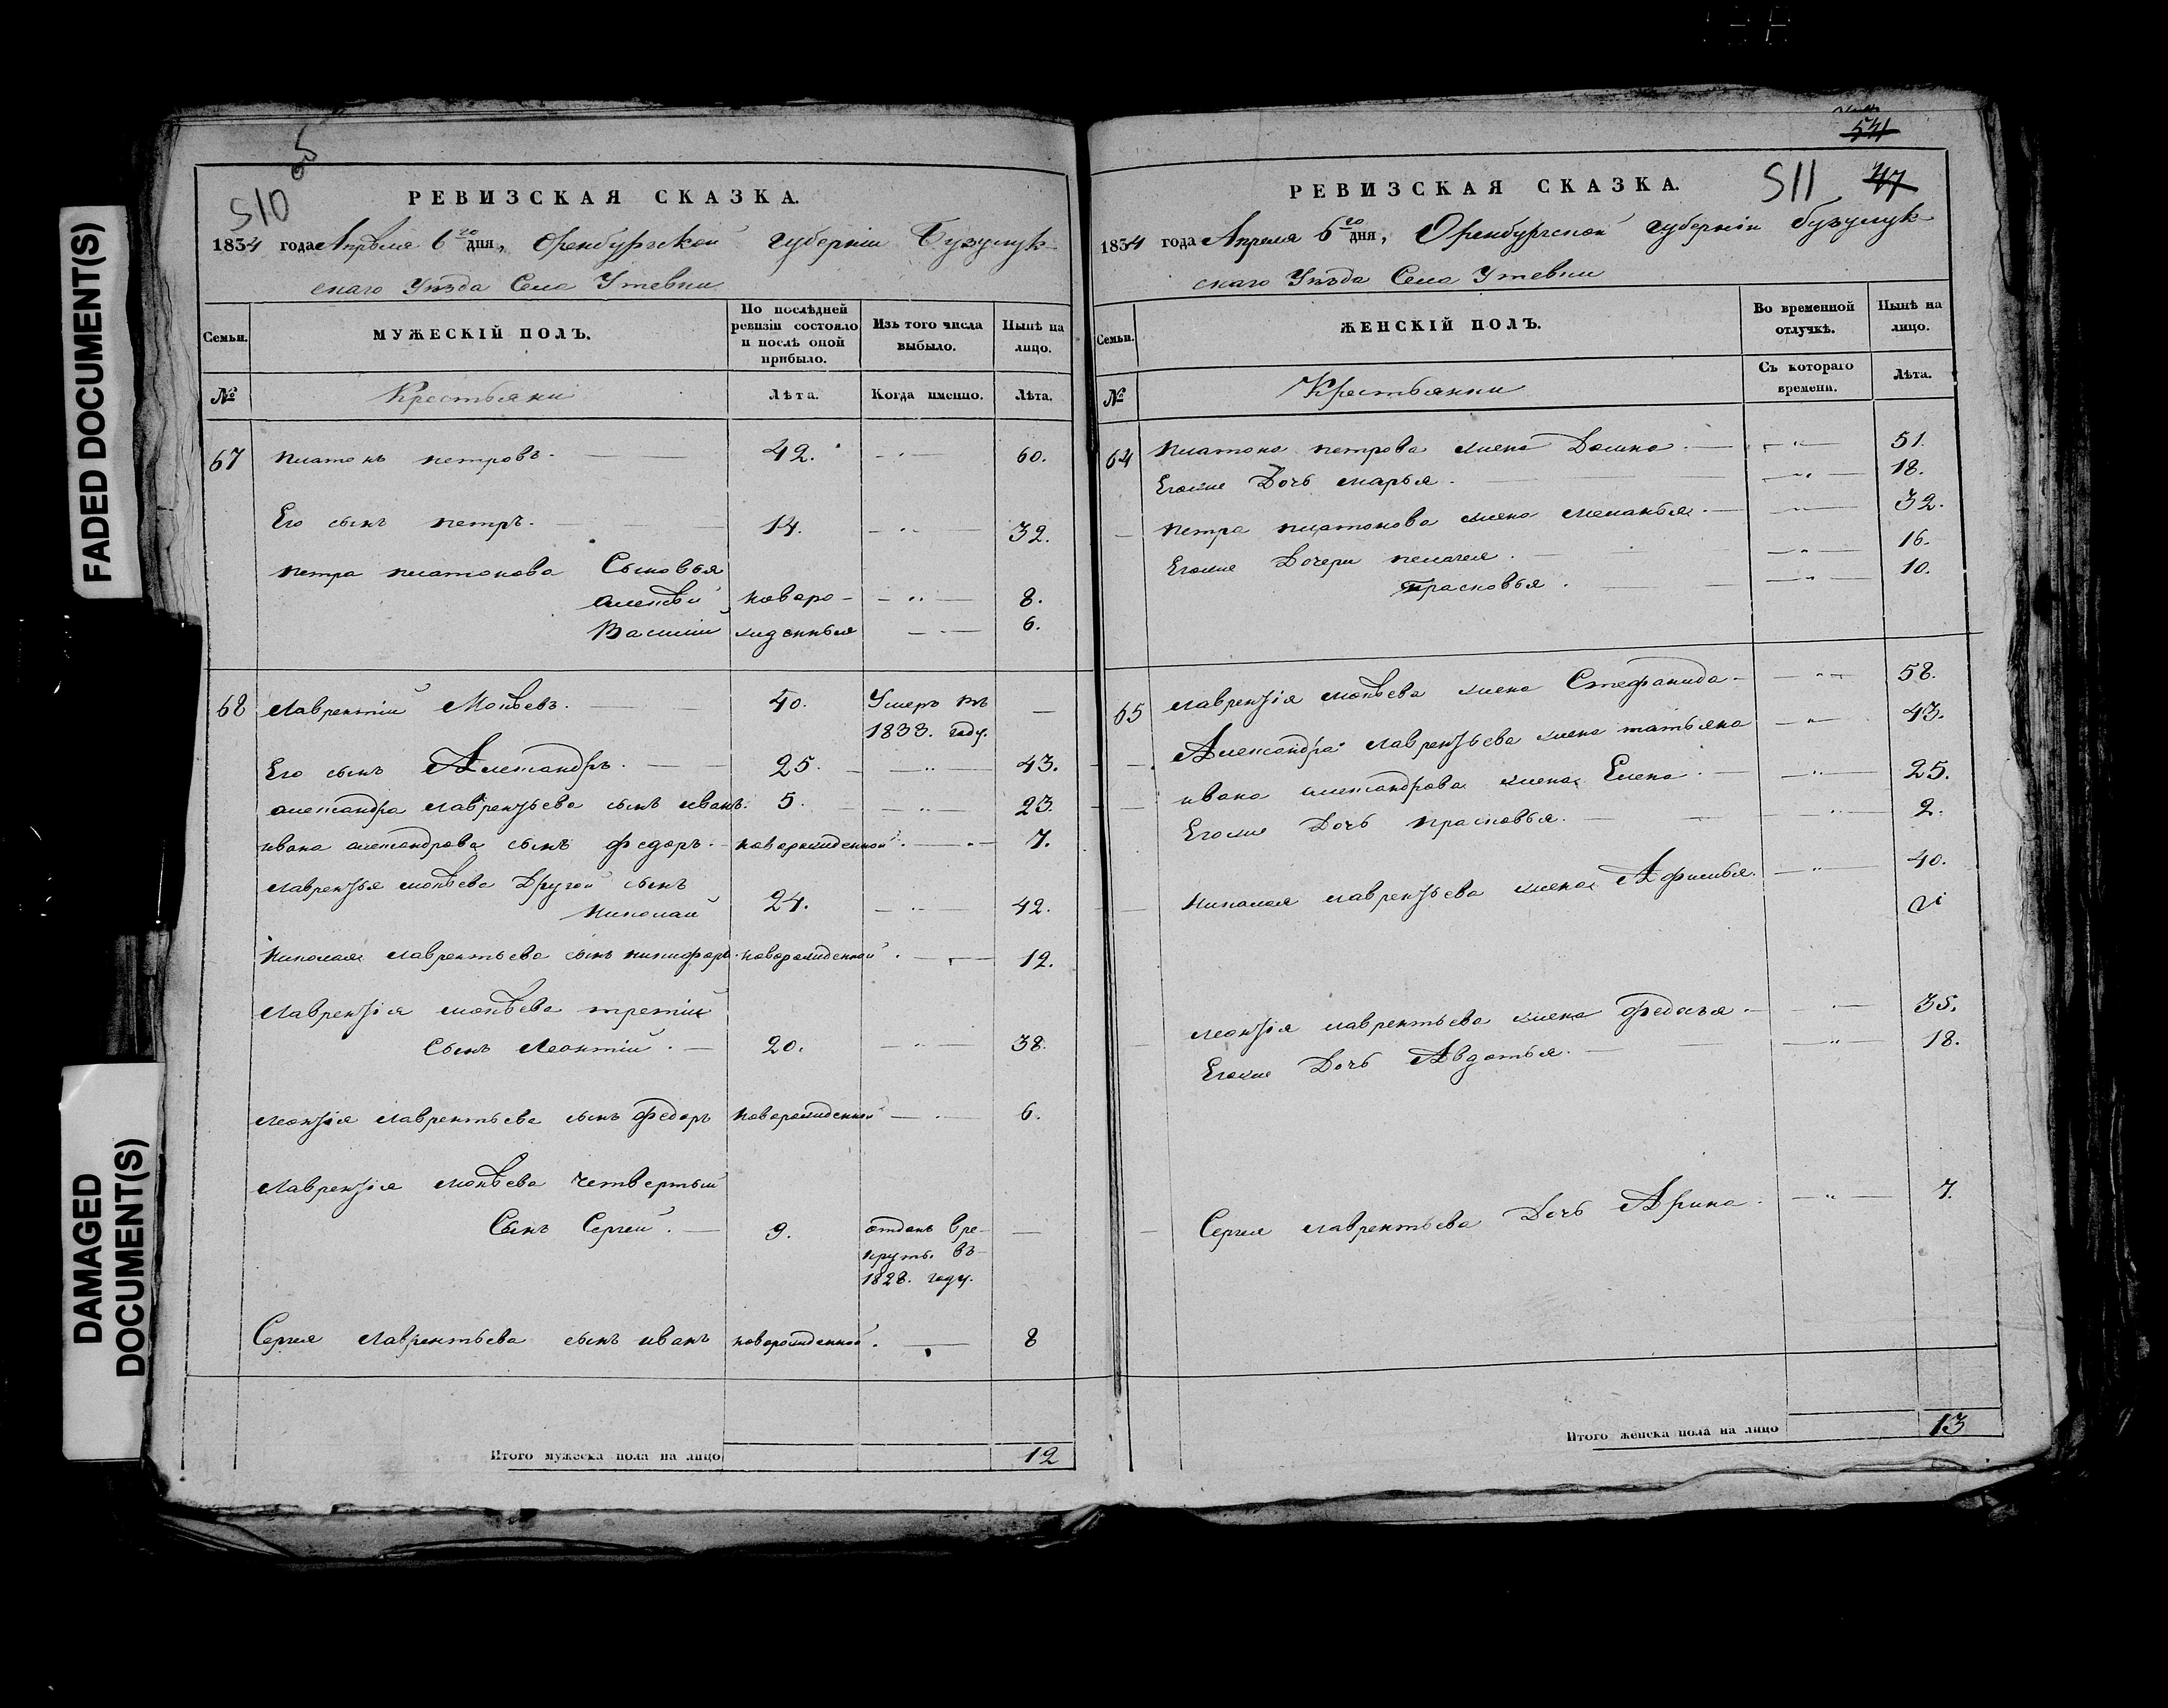 FADED DOCUMENT(S)
DAMAGED
DOCUMENT(S)
510
РЕВИЗСКАЯ СКАЗКА.
1834 года Апреля 6го дня, Оренбургской губернiи Бузулук-
скаго Уѣзда Села Утевки
Семьи.
МУЖЕСКIЙ ПОЛЪ.
По послѣдней ревизiи состояло и послѣ оной прибыло.
Изъ того числа выбыло.
Нынѣ на лицо.
№
Крестьяни
Лѣта.
Когда именно.
Лѣта.
67 Платонъ петровъ. 42. 60.
Его сынъ петръ. 14. 32.
петра платонова Сыновья
алексѣй новаро- 8.
Василий жденныя 6.
68 Лаврентiй Мокѣевъ. 40. Умеръ въ
1833. году.
Его сынъ Александръ. 25. 43.
александра лаврентьева сынъ иванъ. 5. 23.
ивана александрова сынъ федоръ. новорожденной. 7.
лаврентья мокѣева Другой сынъ
Николай 24. 42.
Николая лаврентьева сынъ никифоръ. новорожденной. 12.
Лаврентiя мокѣева третiй
Сынъ Леонтiй. 20. 38.
леонтiя лаврентьева сынъ федоръ новорожденной 6.
Лаврентiя мокѣева четвертый
Сынъ Сергей. 9. отданъ вре-
круты. въ
1828. году.
Сергея лаврентьева сынъ иванъ новорожденной. 8
Итого мужеска пола на лицо 12
541
511 47
РЕВИЗСКАЯ СКАЗКА.
1834 года Апреля 6го дня, Оренбургской губернiи бузулук-
скаго Уѣзда Села Утевки
Семьи.
ЖЕНСКIЙ ПОЛЪ.
Во временной отлучкѣ.
Нынѣ на лицо.
№
Крестьянки
Съ котораго времени.
Лѣта.
64 Платона петрова жена Домна. 51.
Егоже Дочь марья. 18.
петра платонова жена меланья. 32.
Егоже Дочери пелагея. 16.
прасковья. 10.
65 лаврентiя мокѣева жена Стефанида 58.
Александра лаврентьева жена татьяна 43.
ивана александрова жена Елена. 25.
Егоже Дочь прасковья. 2.
Николая лаврентьева жена Афимья. 40.
леонтiя лаврентьева жена федосья. 35.
Егоже Дочь Авдотья. 18.
Сергея лаврентьева Дочь Арина. 7.
Итого женска пола на лицо 13